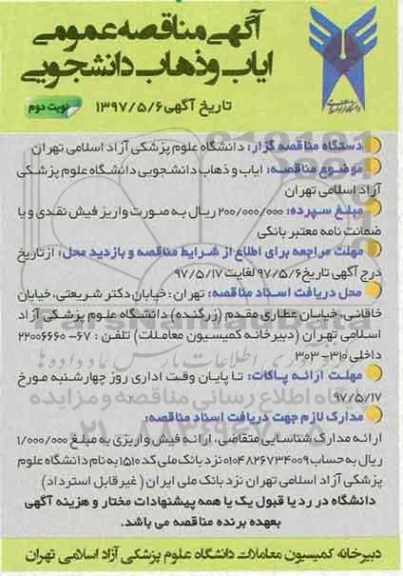 آگهی مناقصه عمومی
ایاب و ذهاب دانشجویی
تاریخ آگهی ۱۳۹۷/۵/۶
نوبت دوم
دستگاه مناقصه گزار: دانشگاه علوم پزشکی آزاد اسلامی تهران
موضوع مناقصه: ایاب و ذهاب دانشجویی دانشگاه علوم پزشکی
آزاد اسلامی تهران
مبلغ سپرده: ۲۰۰/۰۰۰/۰۰۰ ریال به صورت واریز فیش نقدی و یا
ضمانت نامه معتبر بانکی
مهلت مراجعه برای اطلاع از شرایط مناقصه و بازدید محل: از تاریخ
درج آگهی تاریخ ۹۷/۵/۶ لغایت ۹۷/۵/۱۷
محل دریافت اسناد مناقصه: تهران: خیابان دکتر شریعتی، خیابان
خاقانی، خیابان عطاری مقدم (زرگنده) دانشگاه علوم پزشکی آزاد
اسلامی تهران (دبیرخانه کمیسیون معاملات) تلفن: ۶۷-۲۲۰۰۶۶۶۰
داخلی ۳۱۰-۳۰۳
مهلت ارائه پاکات: تا پایان وقت اداری روز چهارشنبه مورخ
۹۷/۵/۱۷
مدارک لازم جهت دریافت اسناد مناقصه:
ارائه مدارک شناسایی متقاضی، ارائه فیش واریزی به مبلغ ۱/۰۰۰/۰۰۰
ریال به حساب ۰۱۰۴۸۲۶۷۳۴۰۰۹ نزد بانک ملی کد ۱۵۱۰ به نام دانشگاه علوم
پزشکی آزاد اسلامی تهران نزد بانک ملی ایران (غیر قابل استرداد)
دانشگاه در رد یا قبول یک یا همه پیشنهادات مختار و هزینه آگهی
بعهده برنده مناقصه می باشد.
دبیرخانه کمیسیون معاملات دانشگاه علوم پزشکی آزاد اسلامی تهران